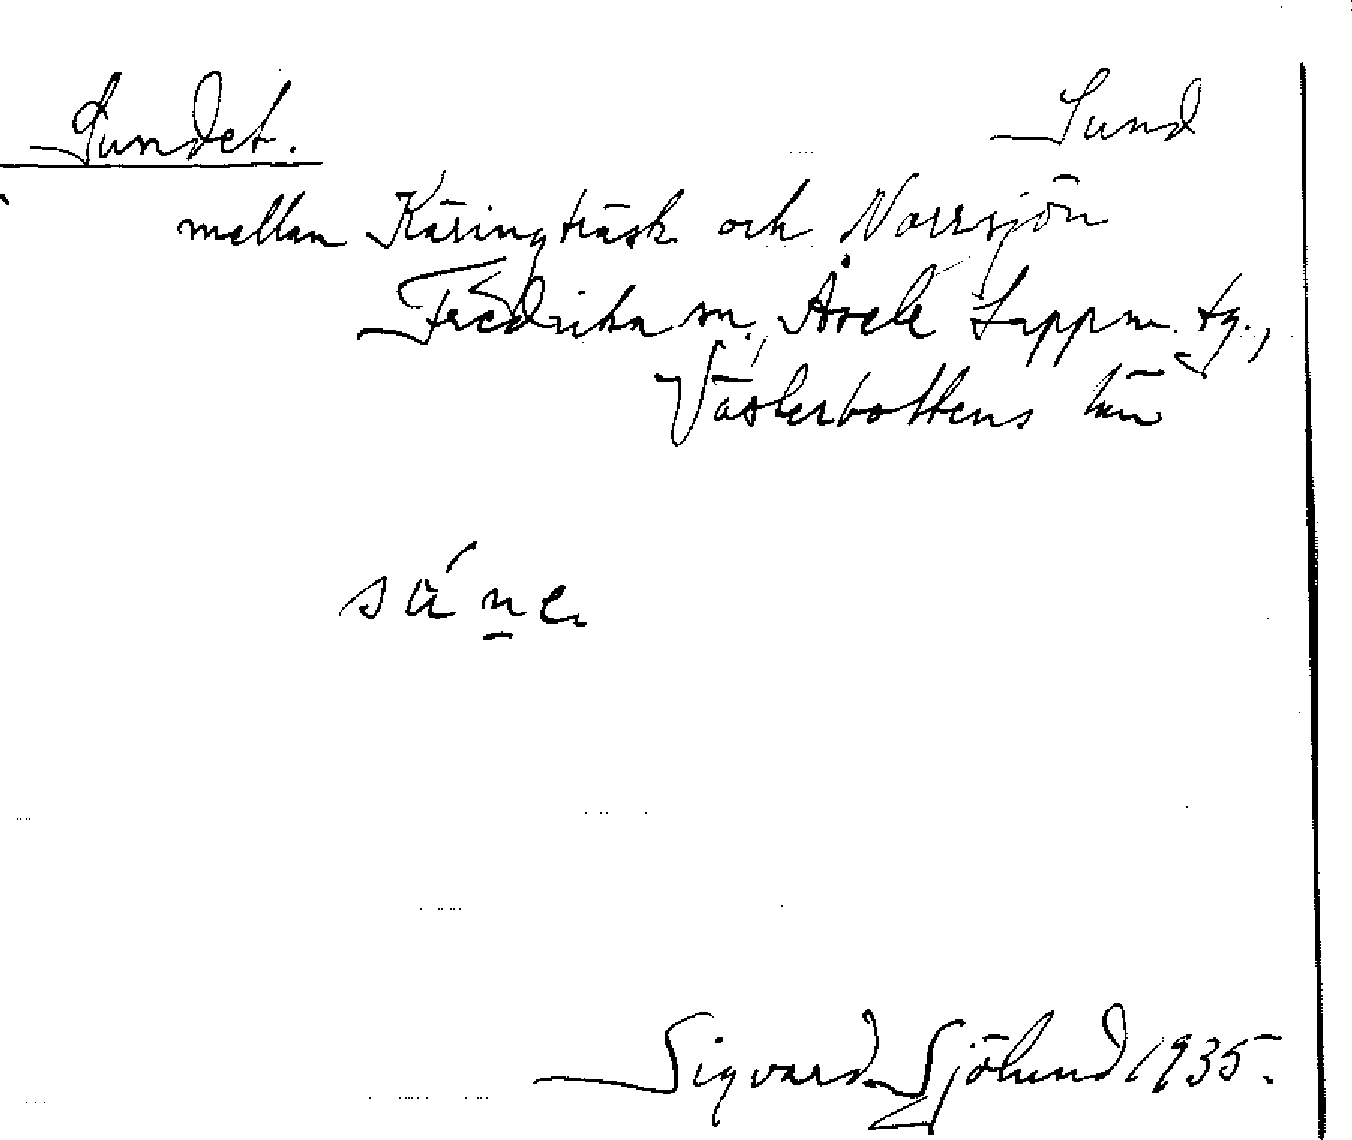 Sundet. Sund
mellan Käringträsk och Norrsjön
Fredrika sn, Åsele Lappm. tg.,
Västerbottens län
sáne
Sigvard Sjölund 1935.